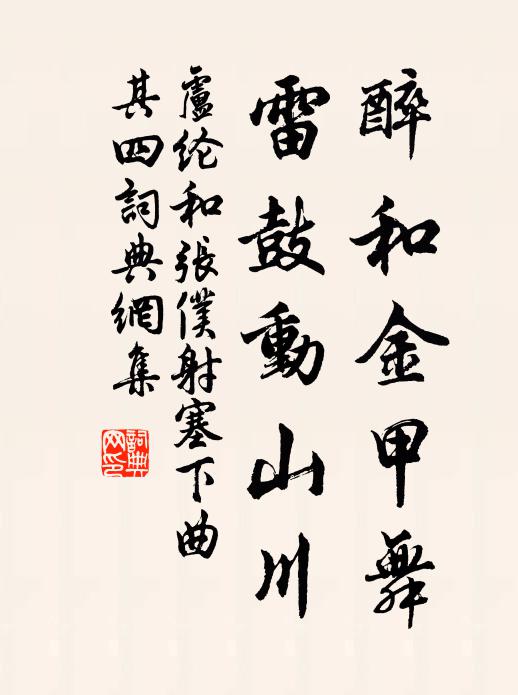 醉和金甲舞
雷鼓動山川
盧纶和張僕射塞下曲
其四詞典網集
詞典
网印